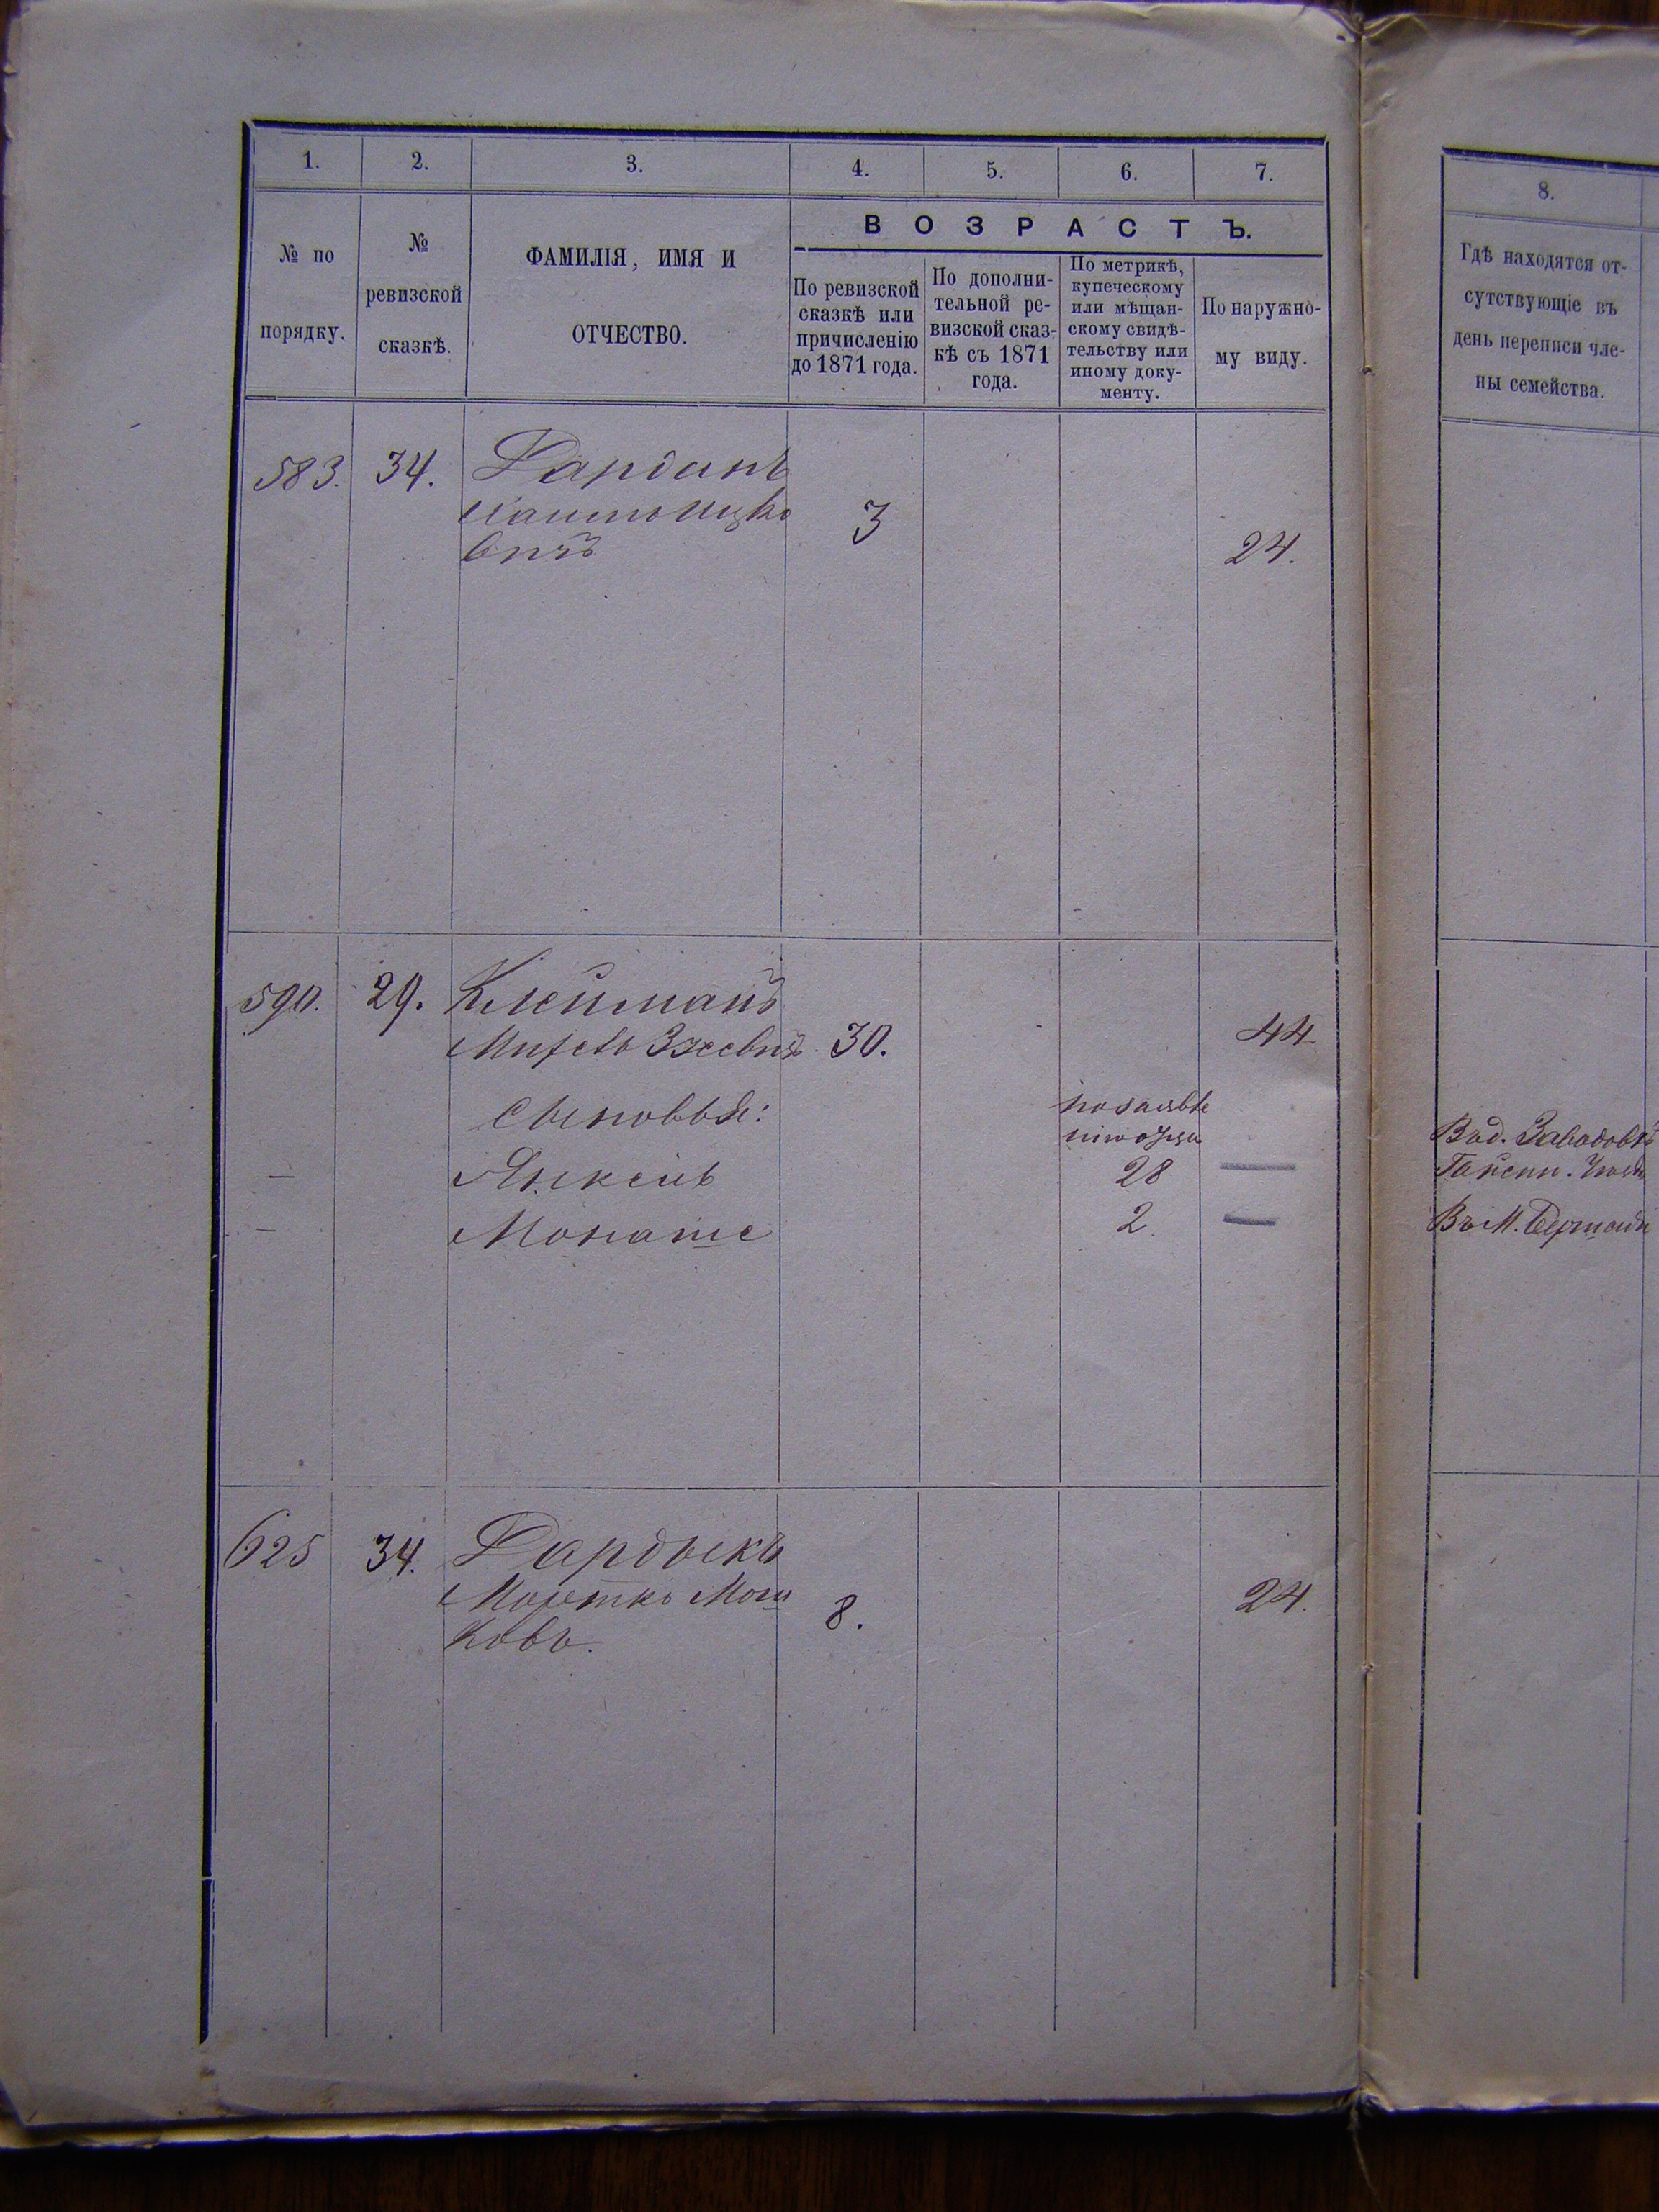 1. 2. 3. 4. 5. 6. 7.
8.
№ по
порядку.
№
ревизской
сказкѣ.
ФАМИЛІЯ, ИМЯ И
ОТЧЕСТВО.
ВОЗРАСТЪ.
По ревизской
сказкѣ или
причисленію
до 1871 года.
По дополни-
тельной ре-
визской сказ-
кѣ съ 1871
года.
По метрикѣ,
купеческому
или мѣщан-
скому свидѣ-
тельству или
иному доку-
менту.
По наружно-
му виду.
Гдѣ находятся от-
сутствующіе въ
день переписи чле-
ны семейства.
583. 34.
3
вичъ
24.
590. 29. Клейманъ
30. 44
Сыновья:
28
Монаше 2.
Въ М.
625 34. Дардыкъ
Мош
8. 24.
ковъ.